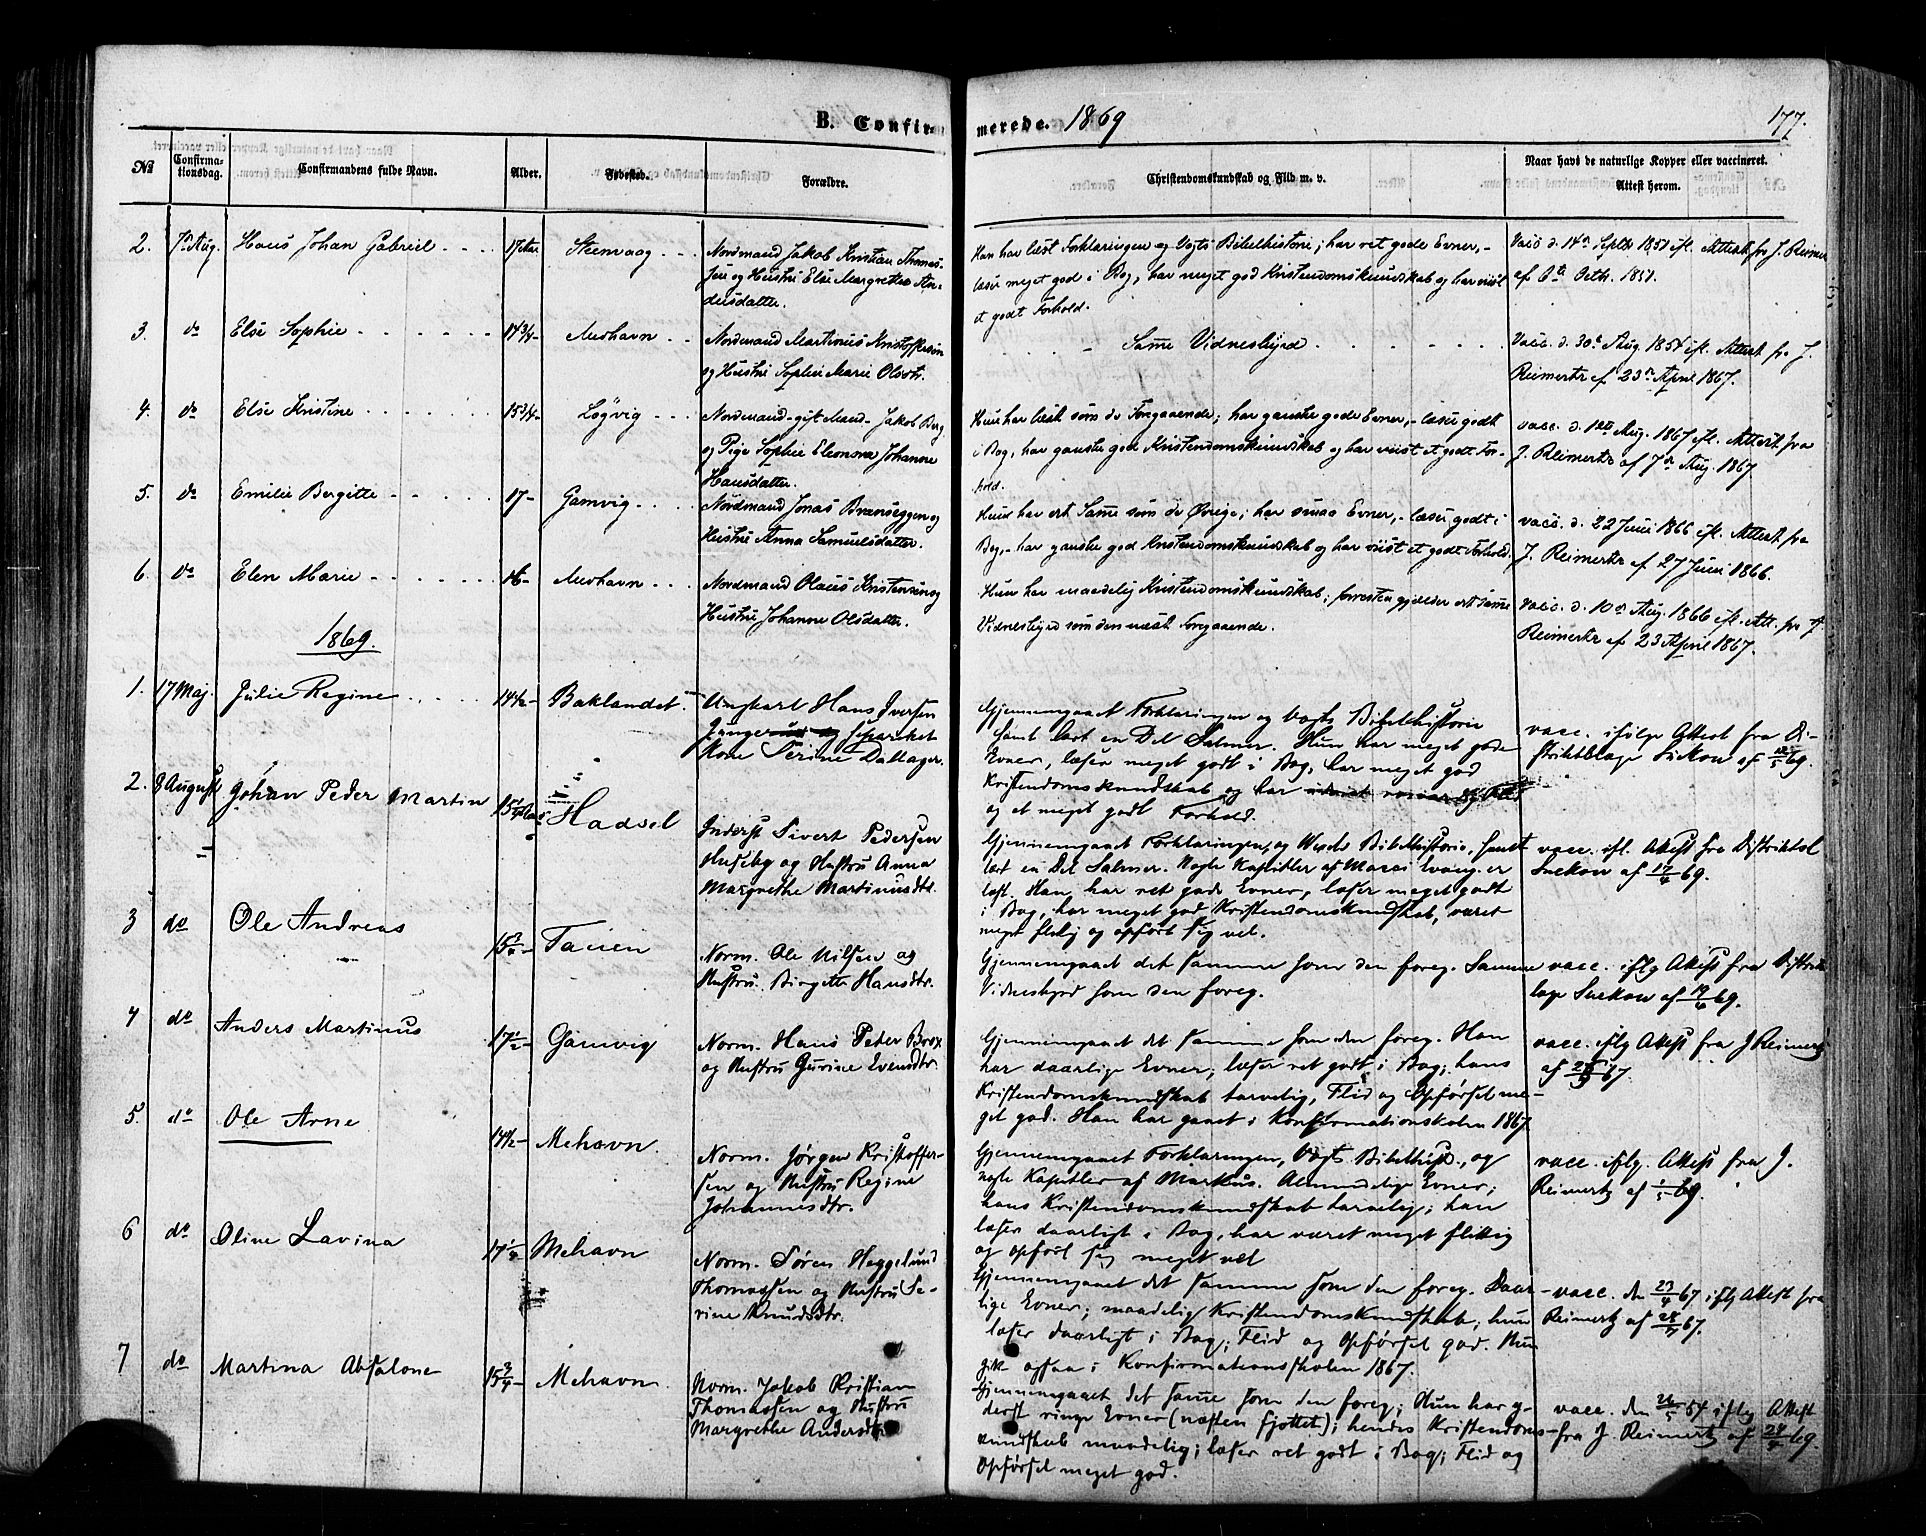 B. Confirmerede. 1869
177.
No
Confirmationsdag.
Confirmandens fulde Navn.
Alder.
Fødested.
Forældre.
Christendomskundskab og Flid m. v.
Naar havt de naturlige Kopper eller vaccineret.
Attest herom.
2. Aug. Hans Johan Gabriel 17 Aar Steenvaag
Nordmand Jakob Kristian Thomas-
sen og Hustru Else Margrethe An-
dersdatter.
Han har læst Forklaringen og Vogts Bibelhistorie; har ret gode Evner, -
læser meget god i Bog, har meget god Kristendomskundskab og har viist
et godt Forhold.
Vacc. d. 14de Septbr. 1851 ifl. Attest fra J. Reimer
af 6te Octbr. 1851.
3. do Else Sophie 14 3/4 - Mevhavn
Nordmand Martinus Kristoffersen
og Hustru Sophie Marie Olsdtr.
Same Vidnesbyrd
Vacc. d. 30te Aug. 1854 ifl. Attest fra J.
Reimertz af 23de April 1867.
4. do Else Kristine 15 3/4 - Løgvig
Nordmand - gift Mand - Jakob Berg
og Pige Sophie Eleonora Johanne
Hansdatter.
Hun har læst som de Foregaaende; har ganske gode Evner, - læser godt
i Bog, har ganske god Kristendomskundskab og har viist et godt For-
hold.
vacc. d. 1ste Aug. 1867 ifl. Attest fra
J. Reimertz af 7de Aug. 1867.
5. do Emilie Bergitte 17 - Gamvig
Nordmand Jonas Brænseggen og
Hustru Anna Samuelsdatter.
Hun har ert Same som de Øvrige; har smaa Evner, - læser godt i
Bog, - har ganske god Kristendomskundskab og har viist et godt Forhold.
vacc. d. 22 Juni 1866 ifl. Attest fra
J. Reimertz af 27 Juni 1866.
6. do Elen Marie 16 - Mevhavn
Nordmand Olaus Kristensen og
Hustru Johanne Olsdatter.
Hun har maadelig Kristendomskundskab; forresten gjelder ert same
Vidnesbyrd som den næst Foregaaende.
Vacc. d. 10de Aug. 1866 ifl. Att. fra J.
Reimertz af 23 April 1867.
1869.
1. 17 Maj. Julie Regine 14 1/2 - Baklandet
Ungkarl Hans Iversen
og separeret
Kone Serine Dallager.
Gjennemgaaet Forklaringen og Vogts Bibelhistorie
samt lært en Del Salmer. Hun har meget gode
Evner, læser meget godt i Bog, har meget god
Kristendomskundskab og har
og et meget godt Forhold.
vacc. ifølge Attest fra Di-
striktslæge Suckow af 12/5 69.
2. 8 August Johan Peder Martin 15 1/4 Aar Hadsel
Inderst Sivert Pedersen
Huseby og Hustru Anna
Margrethe Martinusdtr.
Gjennemgaaet Forklaringen, og Vogts Bibelhistorie, samt
lært en Del Salmer. Nogle Kapitler af Marci Evang. er
læst. Han har ret gode Evner, læser meget godt
i Bog, har meget god Kristendomskundskab, været
meget flittig og opført sig vel.
vacc. ifl. Attest fra Distriktsl
Suckow af 17/4 69.
3 do Ole Andreas 15 3/4 - Tanen
Norm. Ole Nilsen og
Hustru Birgitte Hansdtr.
Gjennemgaaet det samme som den foreg. Samme
Vidnesbyrd som den foreg.
vacc. iflg Attest fra Distrikts
læge Suckow af 19/4 69.
4 do Anders Martinus 17 1/2 - Gamvig
Norm. Hans Peder Brox
og Hustru Gurine Evensdtr.
Gjennemgaaet det samme som den foreg. Han
har daarlige Evner, læser ret godt i Bog; hans
Kristendomskundskab tarvelig, Flid og Opførsel me-
get god. Han har gaaet i Konfirmationskolen 1867.
vacc. iflg Attest fra J Reimertz
af 67.
5. do Ole Arne 14 1/2 - Mehavn.
Norm. Jørgen Kristoffer-
sen og Hustru Regine
Johannesdtr.
Gjennemgaaet Forklaringen, Vogts Bibelhist., og
nogle Kapitler af Markus. Almindelige Evner;
hans Kristendomskundskab tarvelig; han
læser daarligt i Bog, har været meget flittig
og opført sig meget vel
vacc. iflg. Attest fra J.
Reimertz af 1/5 69.
6 do Oline Lavina 17 1/2 - Mehavn
Norm. Søren Heggelund
Thomassen og Hustru Se-
rine Knudsdtr.
Gjennemgaaet det samme som den foreg. Daar-
lige Evner; maadelig Kristendomskundskab; hun
læser daarligt i Bog; Flid og Opførsel god. Hun
gik ogsaa i Konfirmationsskolen 1867.
vacc. den 23/4 67 iflg Attest fra
Reimertz af 28/4 67.
7 do Martina Absalone 15 3/4 - Mehavn.
Norm. Jakob Kristian
Thomassen og Hustru
Margrethe Andersdtr
Gjennemgaaet det samme som den foreg; Hun har y-
derst ringe Evner (næsten fjottet); hendes Kristendoms-
kundskab maadelig; læser ret godt i Bog; Flid og
Opførsel meget god.
vacc. den 26/5 54 iflg Attest
fra J. Reimertz af 29/4 69.